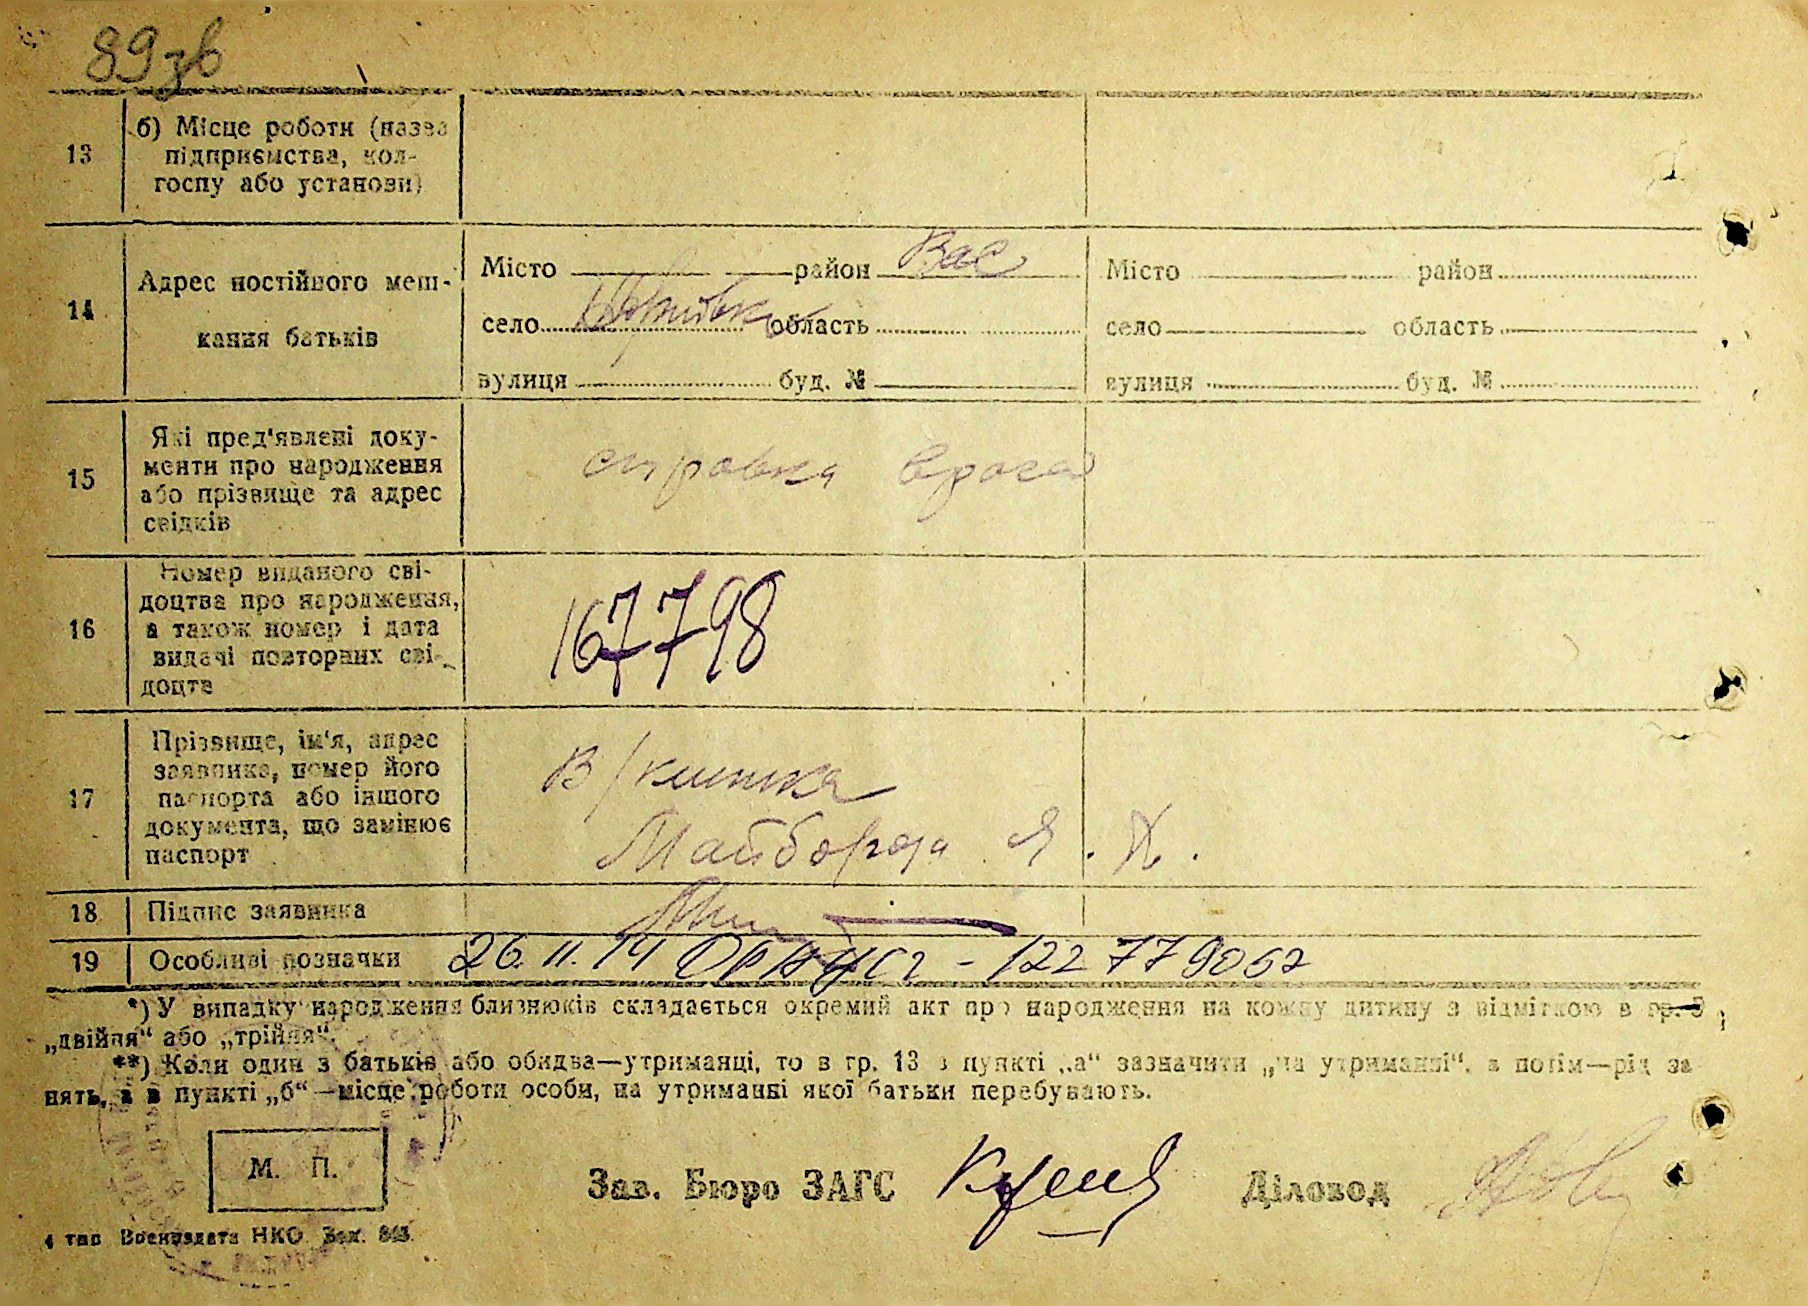 89зв
13
б) Місце роботи (назва
підприємства, кол-
госпу або установи)
14
Адрес постійного меш-
кання батьків
Місто район Вас
село область
вулиця буд. №
Місто район
село область
вулиця буд. №
15
Які пред'явлені доку-
менти про народження
або прізвище та адрес
свідків
справка врача
16
Номер виданого сві-
доцтва про народження,
а також номер і дата
видачі повторних сві-
доцтв
167798
17
Прізвище, ім'я, адрес
заявника, номер його
паспорта або іншого
документа, що замінює
паспорт
Майборода Я. Х.
18
Підпис заявника
19
Особливі позначки
26.11.14 - 122779052
*) У випадку народження близнюків складається окремий акт про народження на кожну дитину з відміткою в гр. 3
„двійня“ або „трійня“.
**) Коли один з батьків або обидва—утриманці, то в гр. 13 в пункті „а“ зазначити „на утриманні“, а потім—рід за
нять, а в пункті „б“—місце роботи особи, на утриманні якої батьки перебувають.
М. П.
Зав. Бюро ЗАГС
Діловод
4 тип Воениздата НКО Зак.